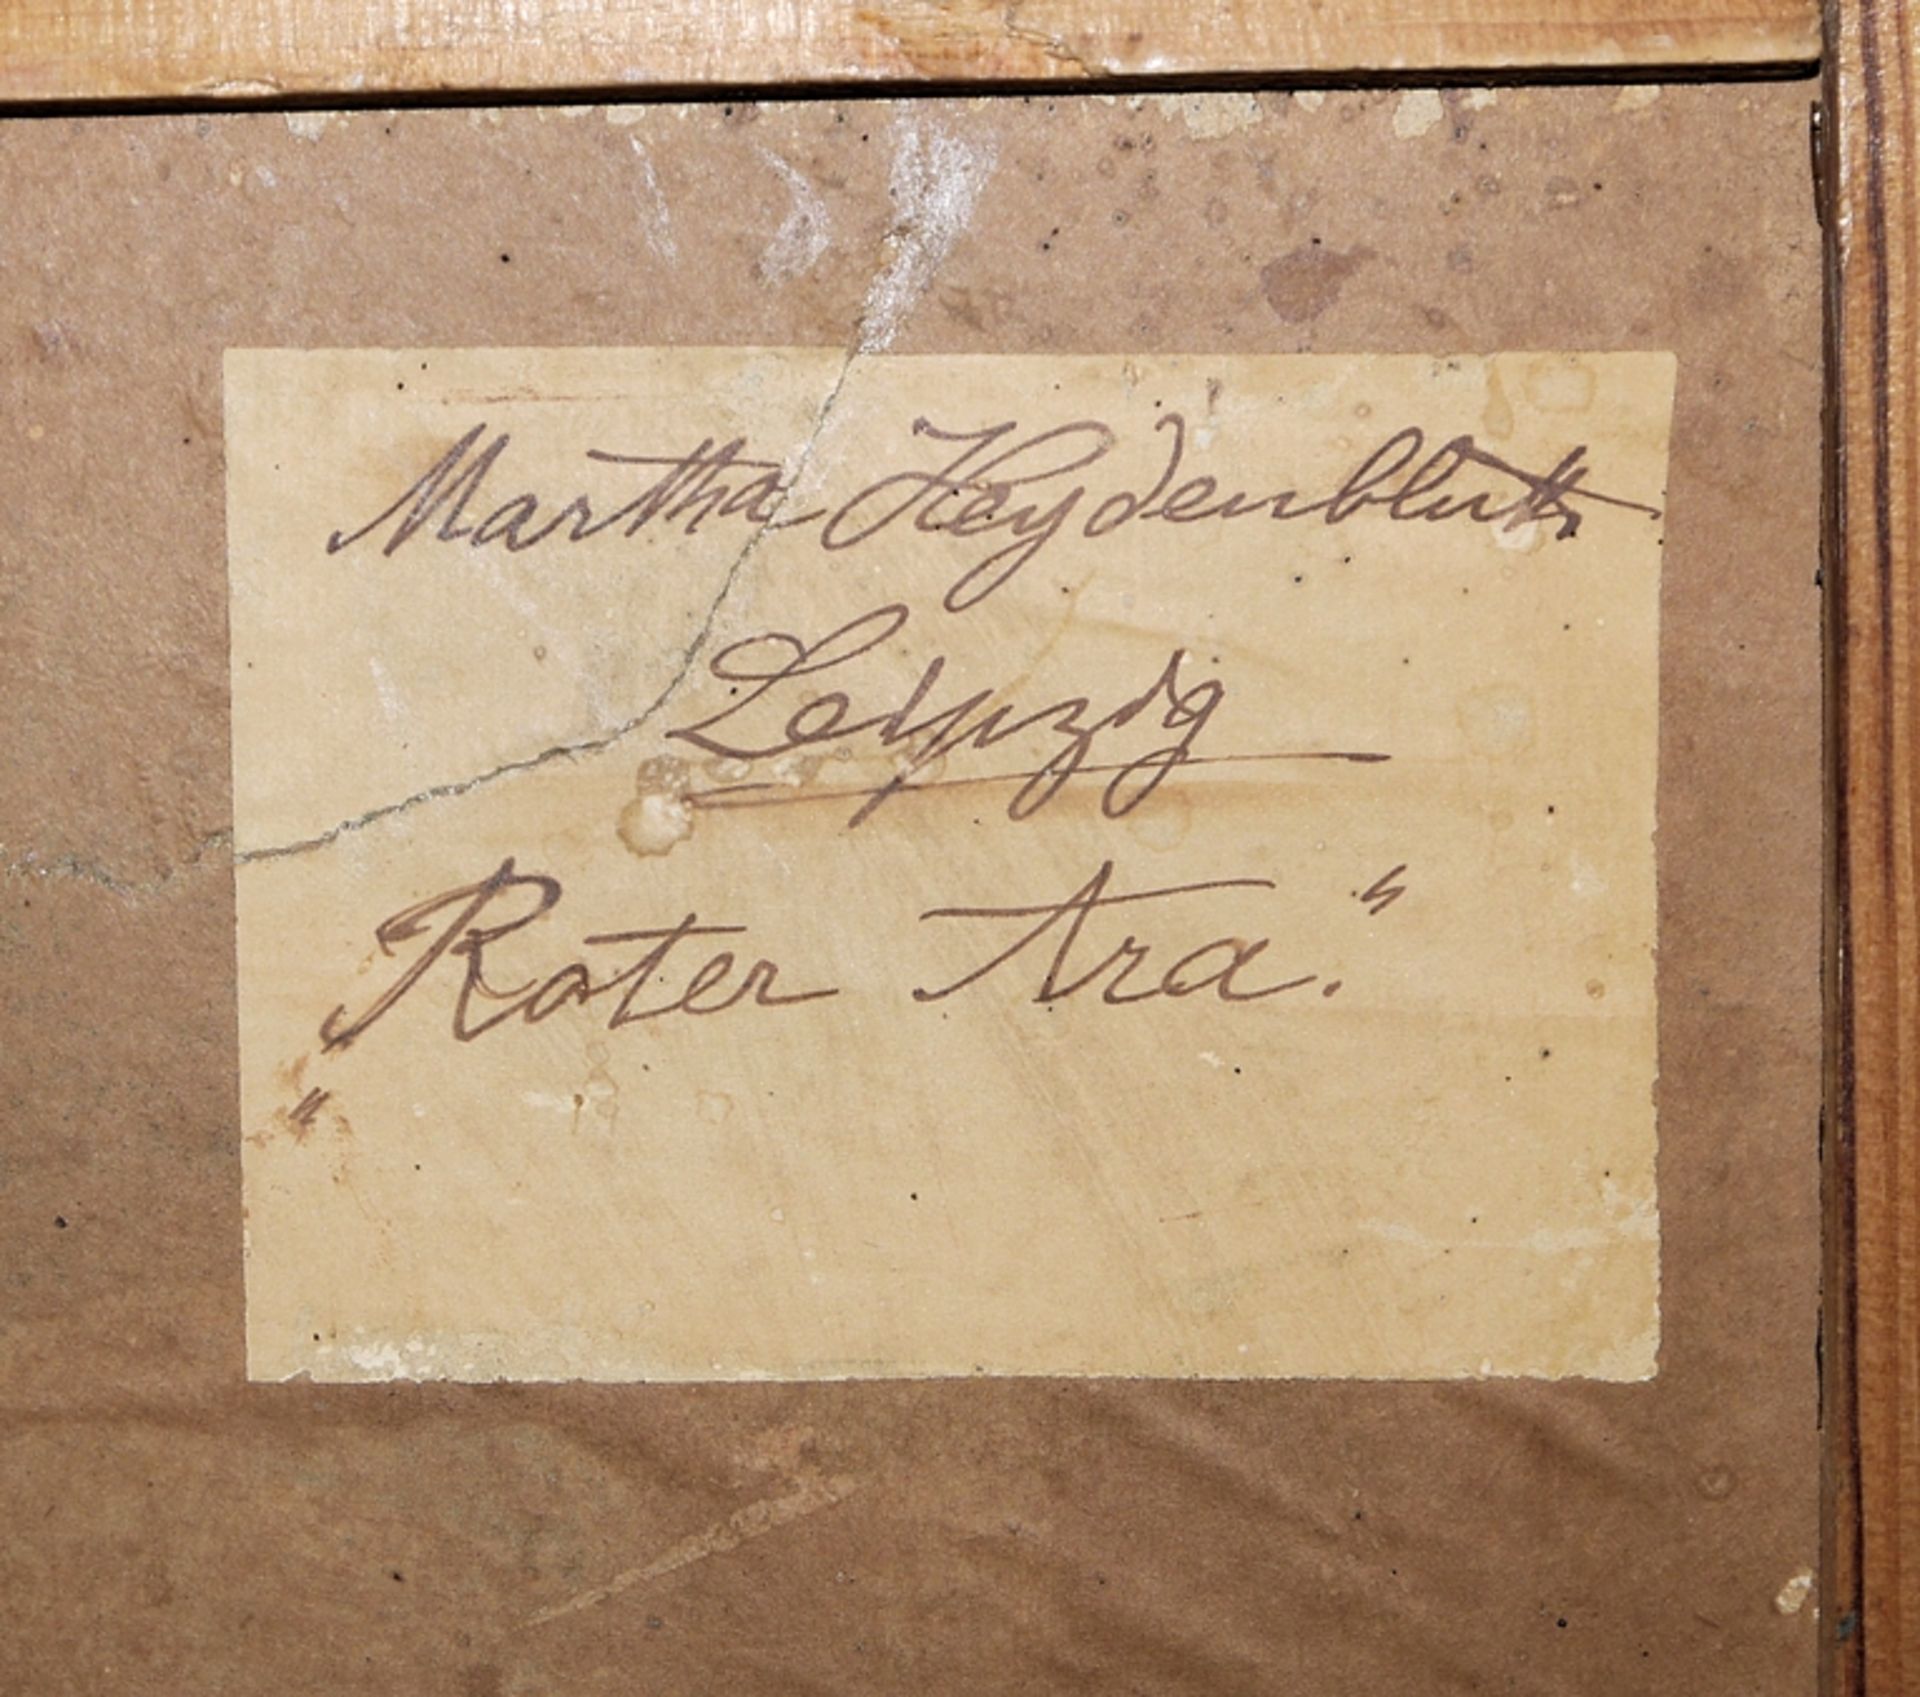 Martha Heydenbluth.
Leipzig
„Roter Ara.“